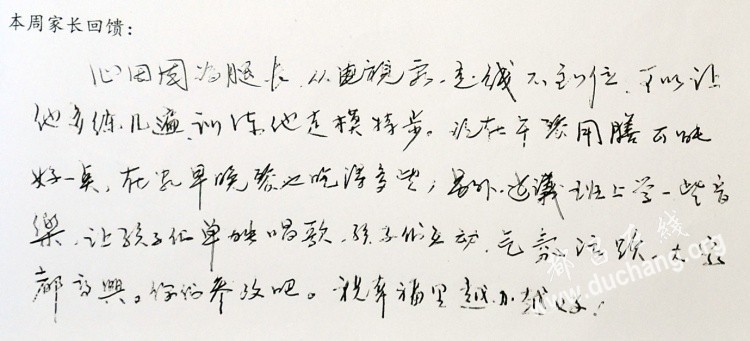 本周家长回馈：
心田因为腿长，从电视看，走线不到位，可以让
他多练几遍，训练他走模特步。现在午餐用膳可能
好一点，在家早晚餐也吃得多些；另外，建議班上学一些音
樂，让孩子们单独唱歌，孩子们互动，气氛活跃，大家
都高興。你们参考吧。祝幸福里越办越好！
都昌在线
www.duchang.org